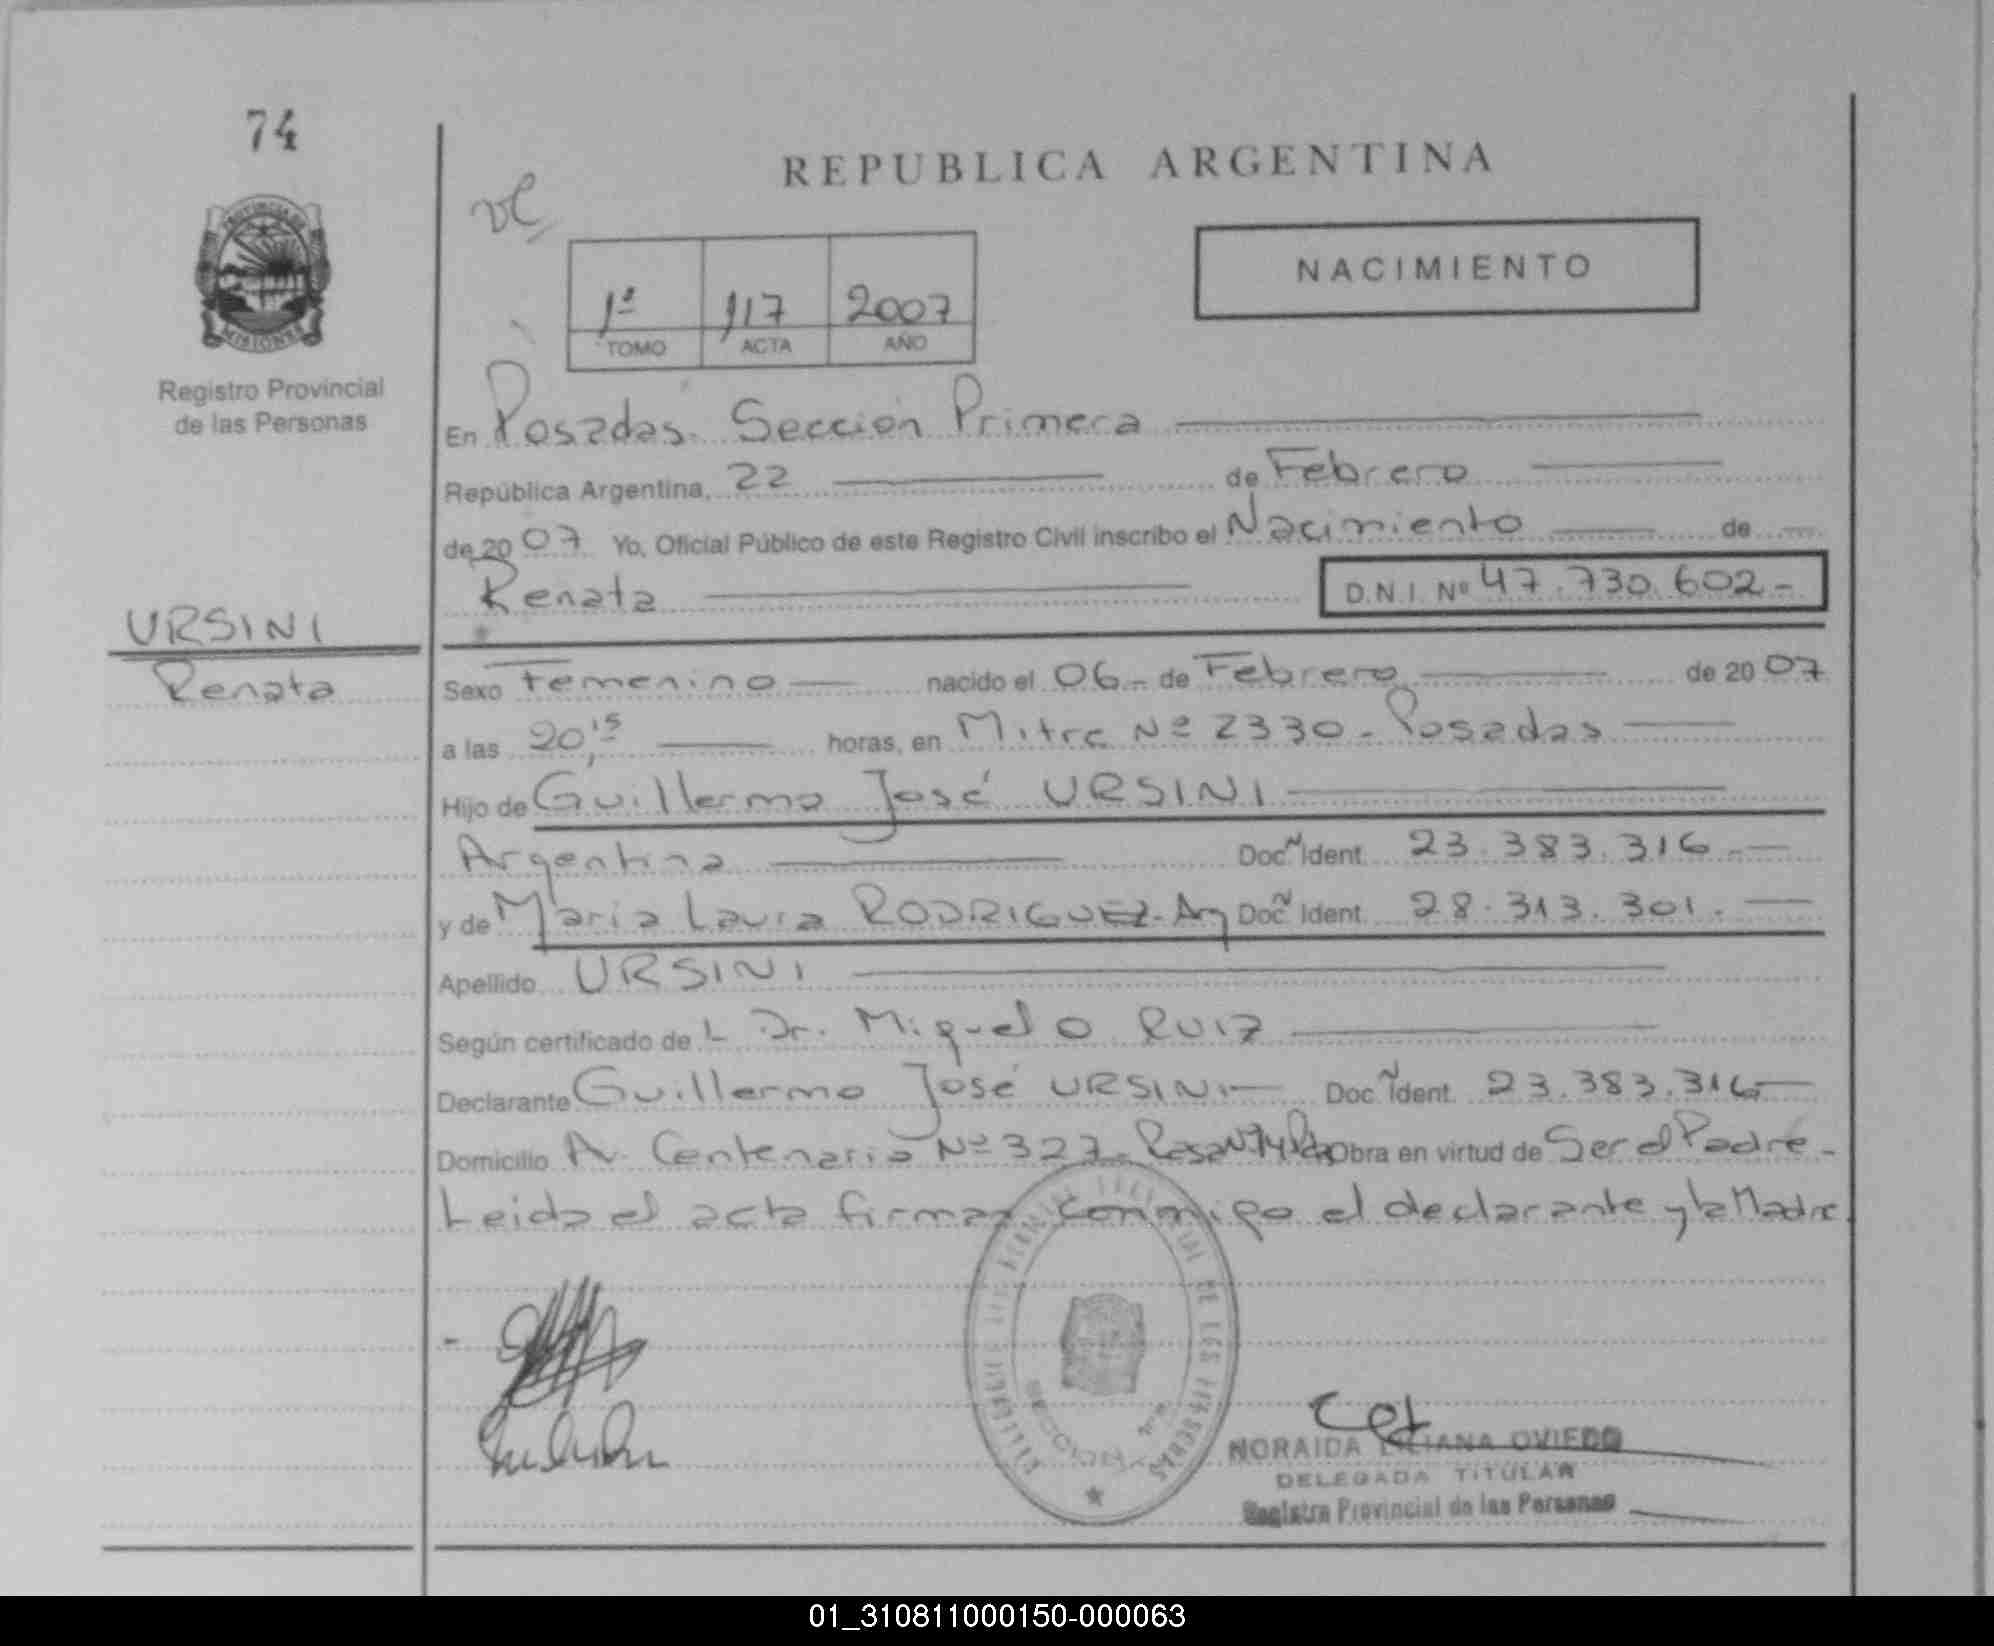 74
REPUBLICA ARGENTINA
PROVINCIA DE
MISIONES
NACIMIENTO
1ª 117 2007
TOMO ACTA AÑO
Registro Provincial
de las Personas
En Posadas. Sección Primera
República Argentina, 22 de Febrero
de 2007 Yo, Oficial Público de este Registro Civil inscribo el Nacimiento de
Renata D.N.I. Nº 47.730.602-
URSINI
Renata
Sexo Femenino nacido el 06 - de Febrero de 2007
a las 20,15 horas, en Mitre Nº 2330 - Posadas
Hijo de Guillermo José URSINI
Argentina Doc. Ident. 23.383.316.-
y de María Laura RODRIGUEZ - Arg Doc. Ident. 28.313.301.
Apellido URSINI
Según certificado de L Dr. Miguel O Ruiz
Declarante Guillermo José URSINI Doc. Ident. 23.383.316
Domicilio Av. Centenario Nº 327 - Obra en virtud de Ser el Padre -
Leida el acta firman conmigo el declarante y la Madre.
NORAIDA LILIANA OVIEDO
DELEGADA TITULAR
Registro Provincial de las Personas
01_310811000150-000063